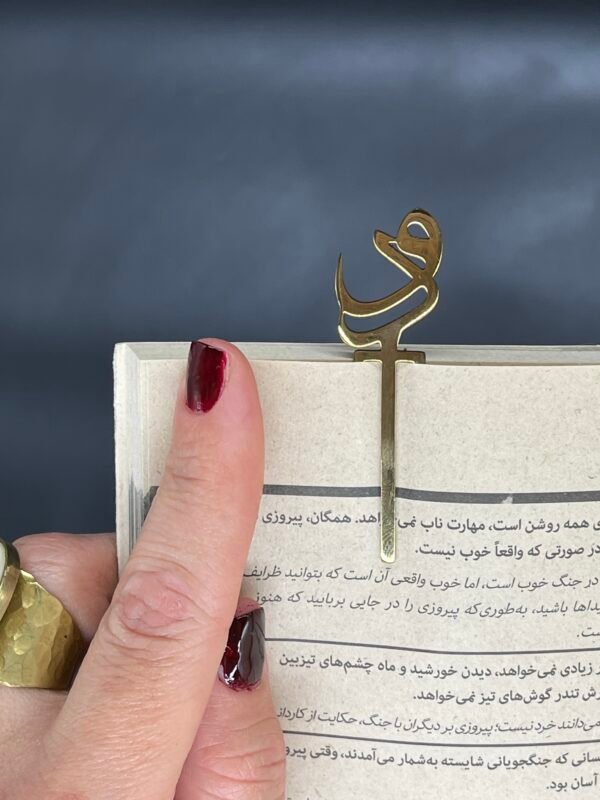 ی همه روشن است، مهارت ناب نمی‌خواهد. همگان، پیروزی
در صورتی که واقعاً خوب نیست.
در جنگ خوب است، اما خوب واقعی آن است که بتوانید ظرایف
باشید، به‌طوری‌که پیروزی را در جایی بربایید که هنوز
ست.
ر زیادی نمی‌خواهد، دیدن خورشید و ماه چشم‌های تیزبین
تندر گوش‌های تیز نمی‌خواهد.
می‌دانند خِرد نیست؛ پیروزی بر دیگران با جنگ، حکایت از
سانی که جنگجویانی شایسته به‌شمار می‌آمدند، وقتی
آسان بود.